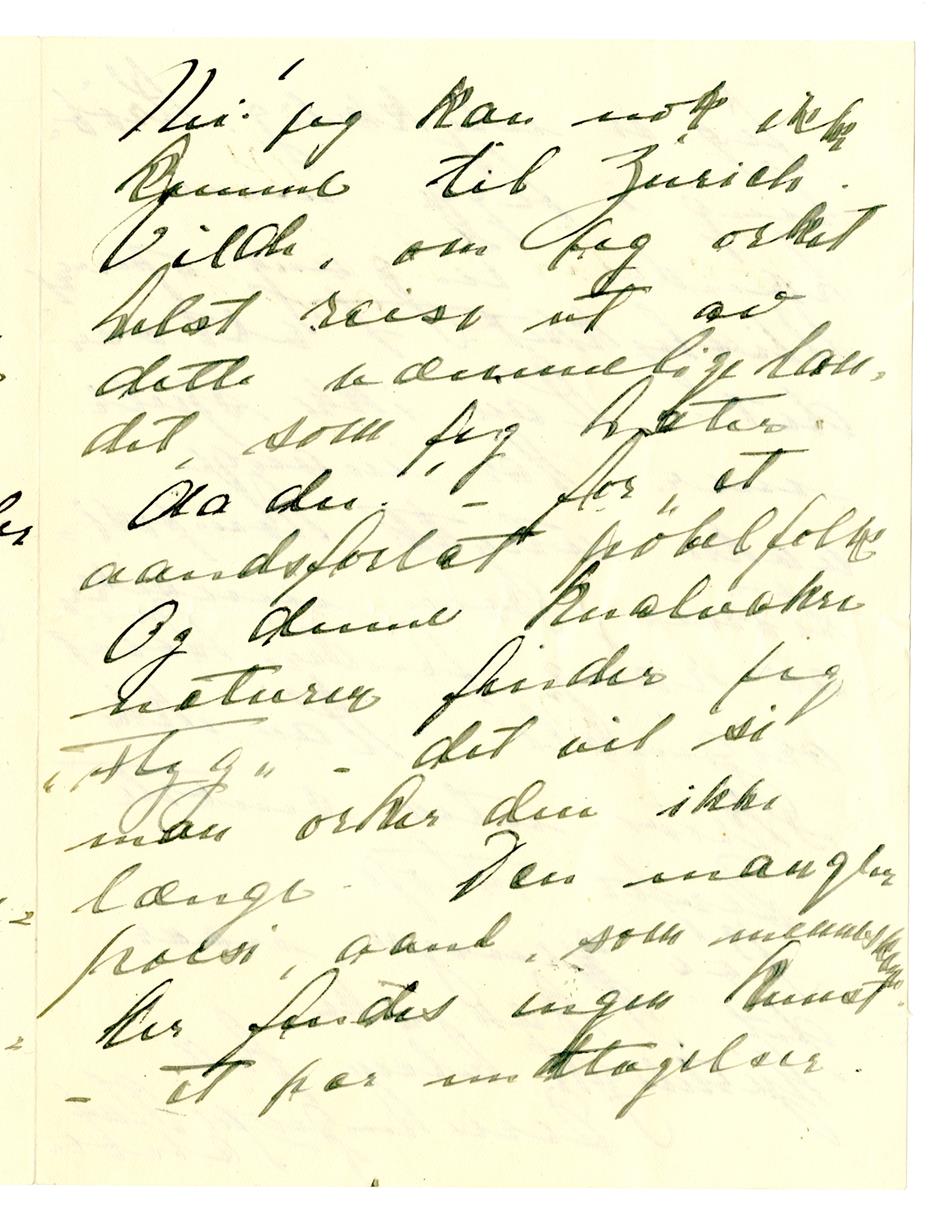 Nei jeg kan nok ikke
komme til Zürich.
Vilde, om jeg orket
helst reise ut av
dette væmmelige lan-
det, som jeg hater.
– for „et
aandsforlat pøbelfolk
Og denne knalvakre
naturen finder jeg
„styg“ – det vil si
man orker den ikke
længe. Den mangler
poesi, aand, som mennesken
Her findes ingen kunst.
– et par undtagelser.